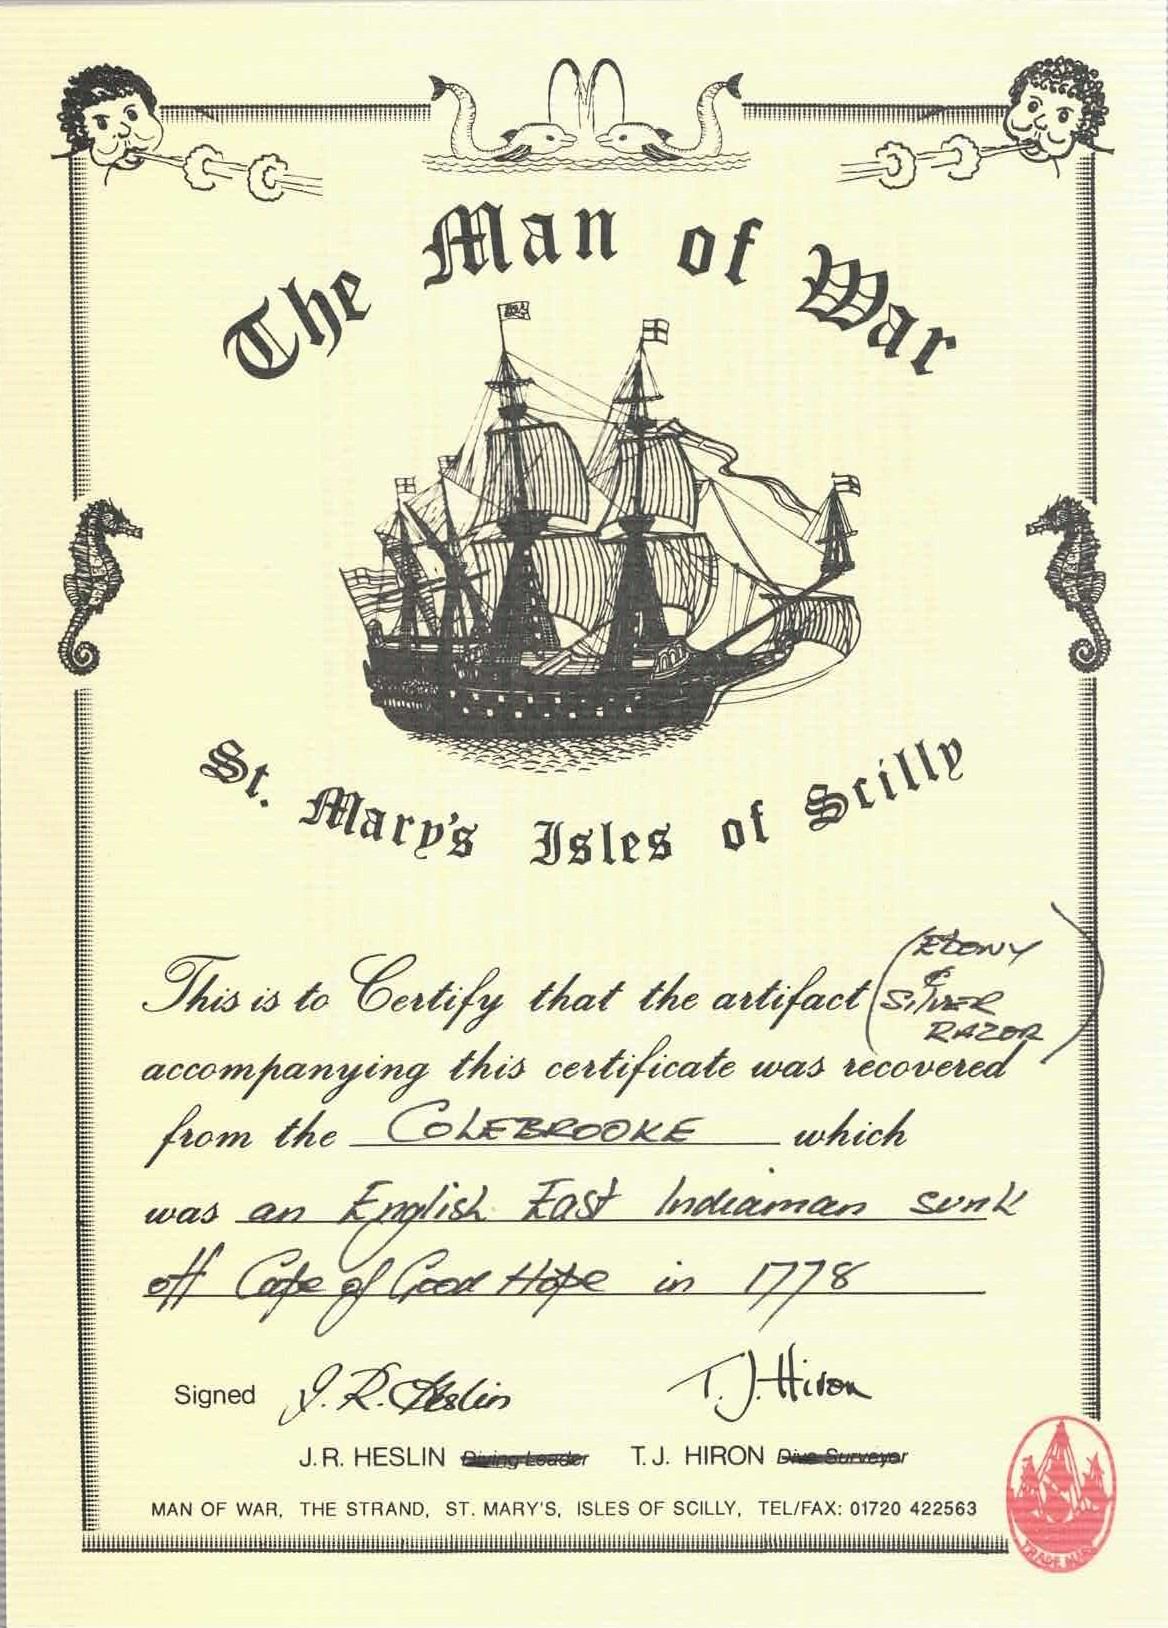 The Man of War
St. Mary's Isles of Scilly
(EBONY
&
SILVER
RAZOR)
This is to Certify that the artifact
accompanying this certificate was recovered
from the COLEBROOKE which
was an English East Indiaman sunk
off Cape of Good Hope in 1778
Signed J. R. Heslin T. J. Hiron
J.R. HESLIN Diving Leader T.J. HIRON Dive Surveyor
MAN OF WAR, THE STRAND, ST. MARY'S, ISLES OF SCILLY, TEL/FAX: 01720 422563
TRADE MARK